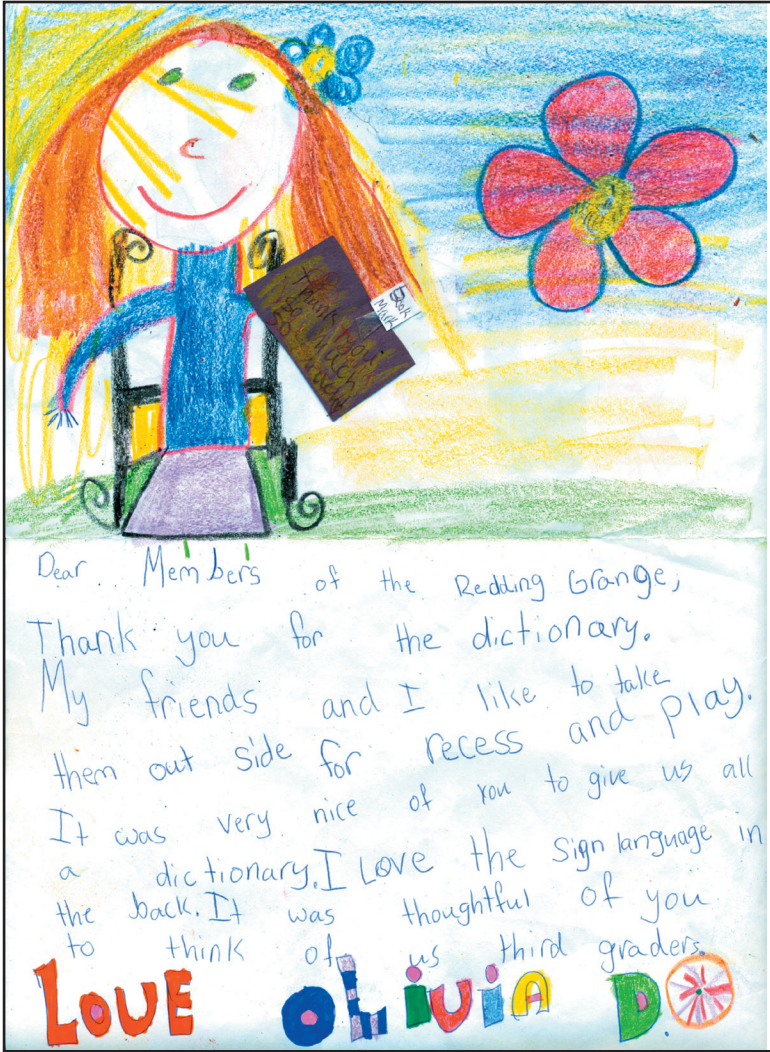 Book
Mark
Thank you
so much
Dear Members of the Redding Grange,
Thank you for the dictionary.
My friends and I like to take
them out side for recess and play.
It was very nice of you to give us all
a dictionary. I Love the sign language in
the back. It was thoughtful of you
to think of us third graders.
LOVE OLIVIA D.